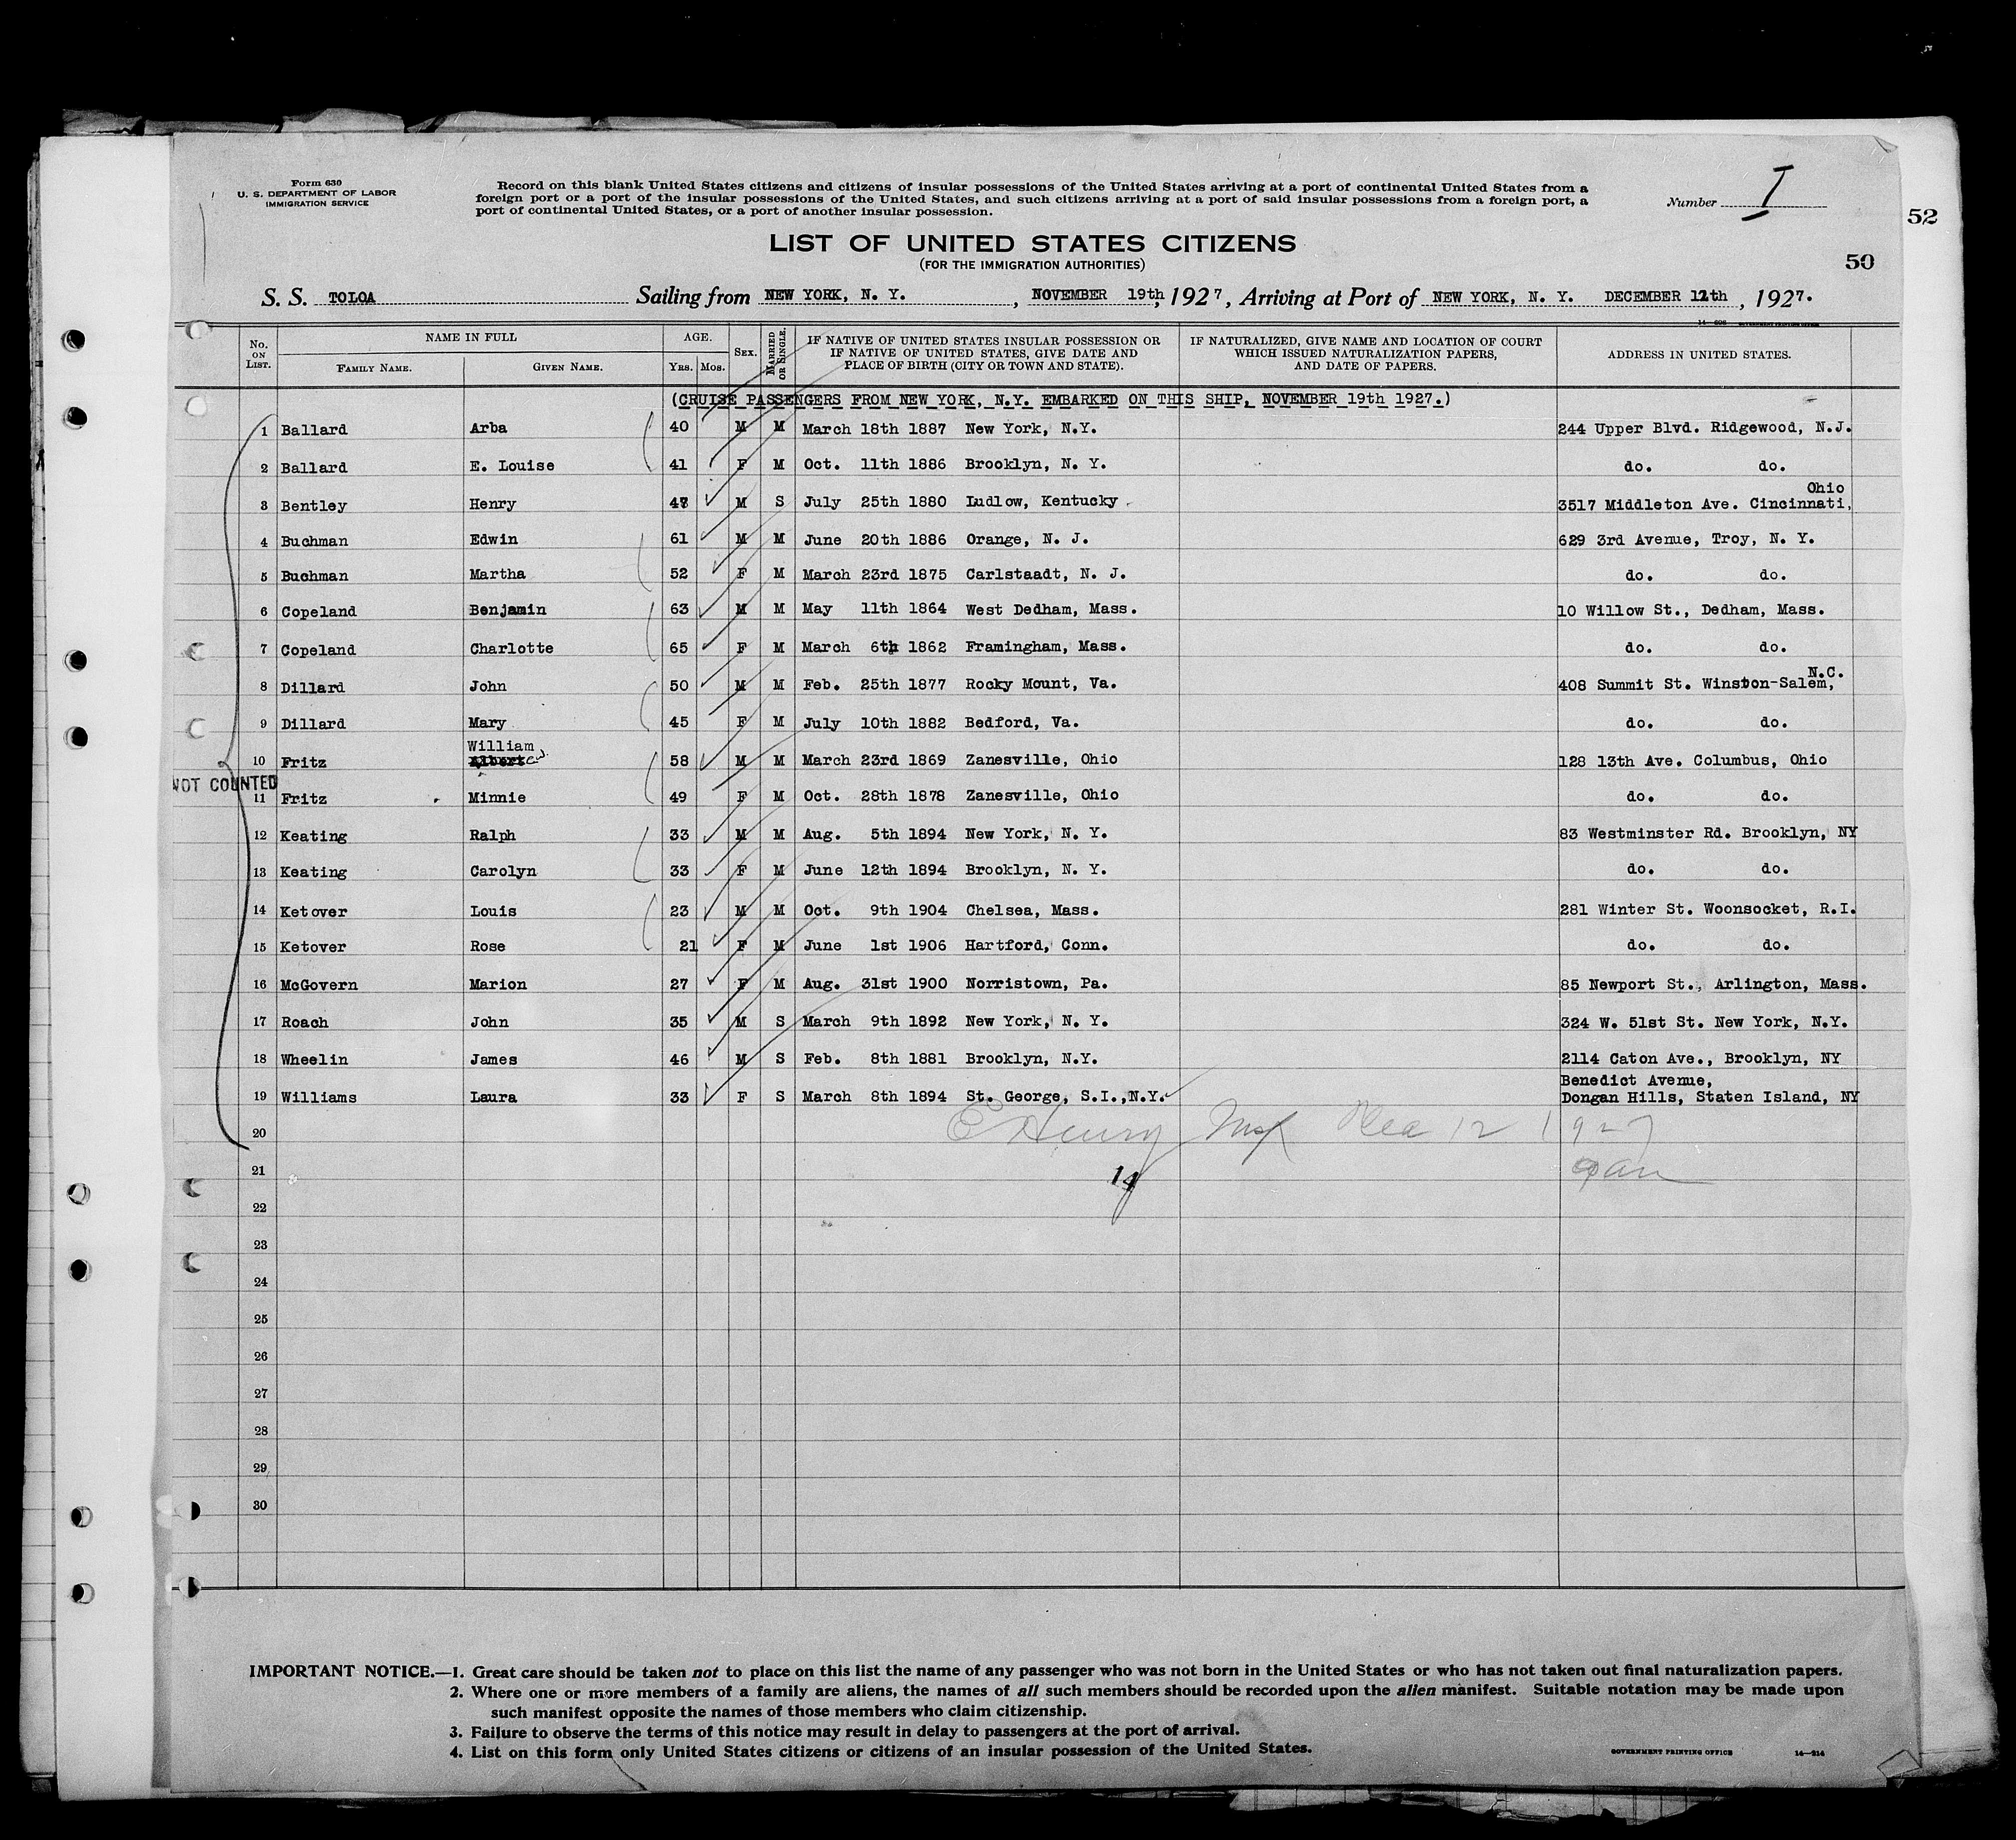 Form 630
U. S. DEPARTMENT OF LABOR
IMMIGRATION SERVICE
Record on this blank United States citizens and citizens of insular possessions of the United States arriving at a port of continental United States from a
foreign port or a port of the insular possessions of the United States, and such citizens arriving at a port of said insular possessions from a foreign port, a
port of continental United States, or a port of another insular possession.
Number I
52
50
LIST OF UNITED STATES CITIZENS
(FOR THE IMMIGRATION AUTHORITIES)
S. S. TOLOA Sailing from NEW YORK, N. Y. , NOVEMBER 19th, 1927, Arriving at Port of NEW YORK, N. Y. DECEMBER 12th , 1927.
No. ON LIST. NAME IN FULL FAMILY NAME. GIVEN NAME. AGE. YRS. MOS. SEX. MARRIED OR SINGLE. IF NATIVE OF UNITED STATES INSULAR POSSESSION OR IF NATIVE OF UNITED STATES, GIVE DATE AND PLACE OF BIRTH (CITY OR TOWN AND STATE). IF NATURALIZED, GIVE NAME AND LOCATION OF COURT WHICH ISSUED NATURALIZATION PAPERS, AND DATE OF PAPERS. ADDRESS IN UNITED STATES.
(CRUISE PASSENGERS FROM NEW YORK, N.Y. EMBARKED ON THIS SHIP, NOVEMBER 19th 1927.)
1 Ballard Arba 40 M M March 18th 1887 New York, N.Y. 244 Upper Blvd. Ridgewood, N.J.
2 Ballard E. Louise 41 F M Oct. 11th 1886 Brooklyn, N. Y. do. do.
3 Bentley Henry 47 M S July 25th 1880 Ludlow, Kentucky 3517 Middleton Ave. Cincinnati, Ohio
4 Buchman Edwin 61 M M June 20th 1886 Orange, N. J. 629 3rd Avenue, Troy, N. Y.
5 Buchman Martha 52 F M March 23rd 1875 Carlstaadt, N. J. do. do.
6 Copeland Benjamin 63 M M May 11th 1864 West Dedham, Mass. 10 Willow St., Dedham, Mass.
7 Copeland Charlotte 65 F M March 6th 1862 Framingham, Mass. do. do.
8 Dillard John 50 M M Feb. 25th 1877 Rocky Mount, Va. 408 Summit St. Winston-Salem, N.C.
9 Dillard Mary 45 F M July 10th 1882 Bedford, Va. do. do.
10 Fritz William Albert 58 M M March 23rd 1869 Zanesville, Ohio 128 13th Ave. Columbus, Ohio
NOT COUNTED
11 Fritz Minnie 49 F M Oct. 28th 1878 Zanesville, Ohio do. do.
12 Keating Ralph 33 M M Aug. 5th 1894 New York, N. Y. 83 Westminster Rd. Brooklyn, NY
13 Keating Carolyn 33 F M June 12th 1894 Brooklyn, N. Y. do. do.
14 Ketover Louis 23 M M Oct. 9th 1904 Chelsea, Mass. 281 Winter St. Woonsocket, R.I.
15 Ketover Rose 21 F M June 1st 1906 Hartford, Conn. do. do.
16 McGovern Marion 27 F M Aug. 31st 1900 Norristown, Pa. 85 Newport St., Arlington, Mass.
17 Roach John 35 M S March 9th 1892 New York, N. Y. 324 W. 51st St. New York, N.Y.
18 Wheelin James 46 M S Feb. 8th 1881 Brooklyn, N.Y. 2114 Caton Ave., Brooklyn, NY
19 Williams Laura 33 F S March 8th 1894 St. George, S.I.,N.Y. Benedict Avenue, Dongan Hills, Staten Island, NY
20 Henry Insp Dec 12 1927
21
14
22
23
24
25
26
27
28
29
30
IMPORTANT NOTICE.—1. Great care should be taken not to place on this list the name of any passenger who was not born in the United States or who has not taken out final naturalization papers.
2. Where one or more members of a family are aliens, the names of all such members should be recorded upon the alien manifest. Suitable notation may be made upon
such manifest opposite the names of those members who claim citizenship.
3. Failure to observe the terms of this notice may result in delay to passengers at the port of arrival.
4. List on this form only United States citizens or citizens of an insular possession of the United States.
GOVERNMENT PRINTING OFFICE 14—214